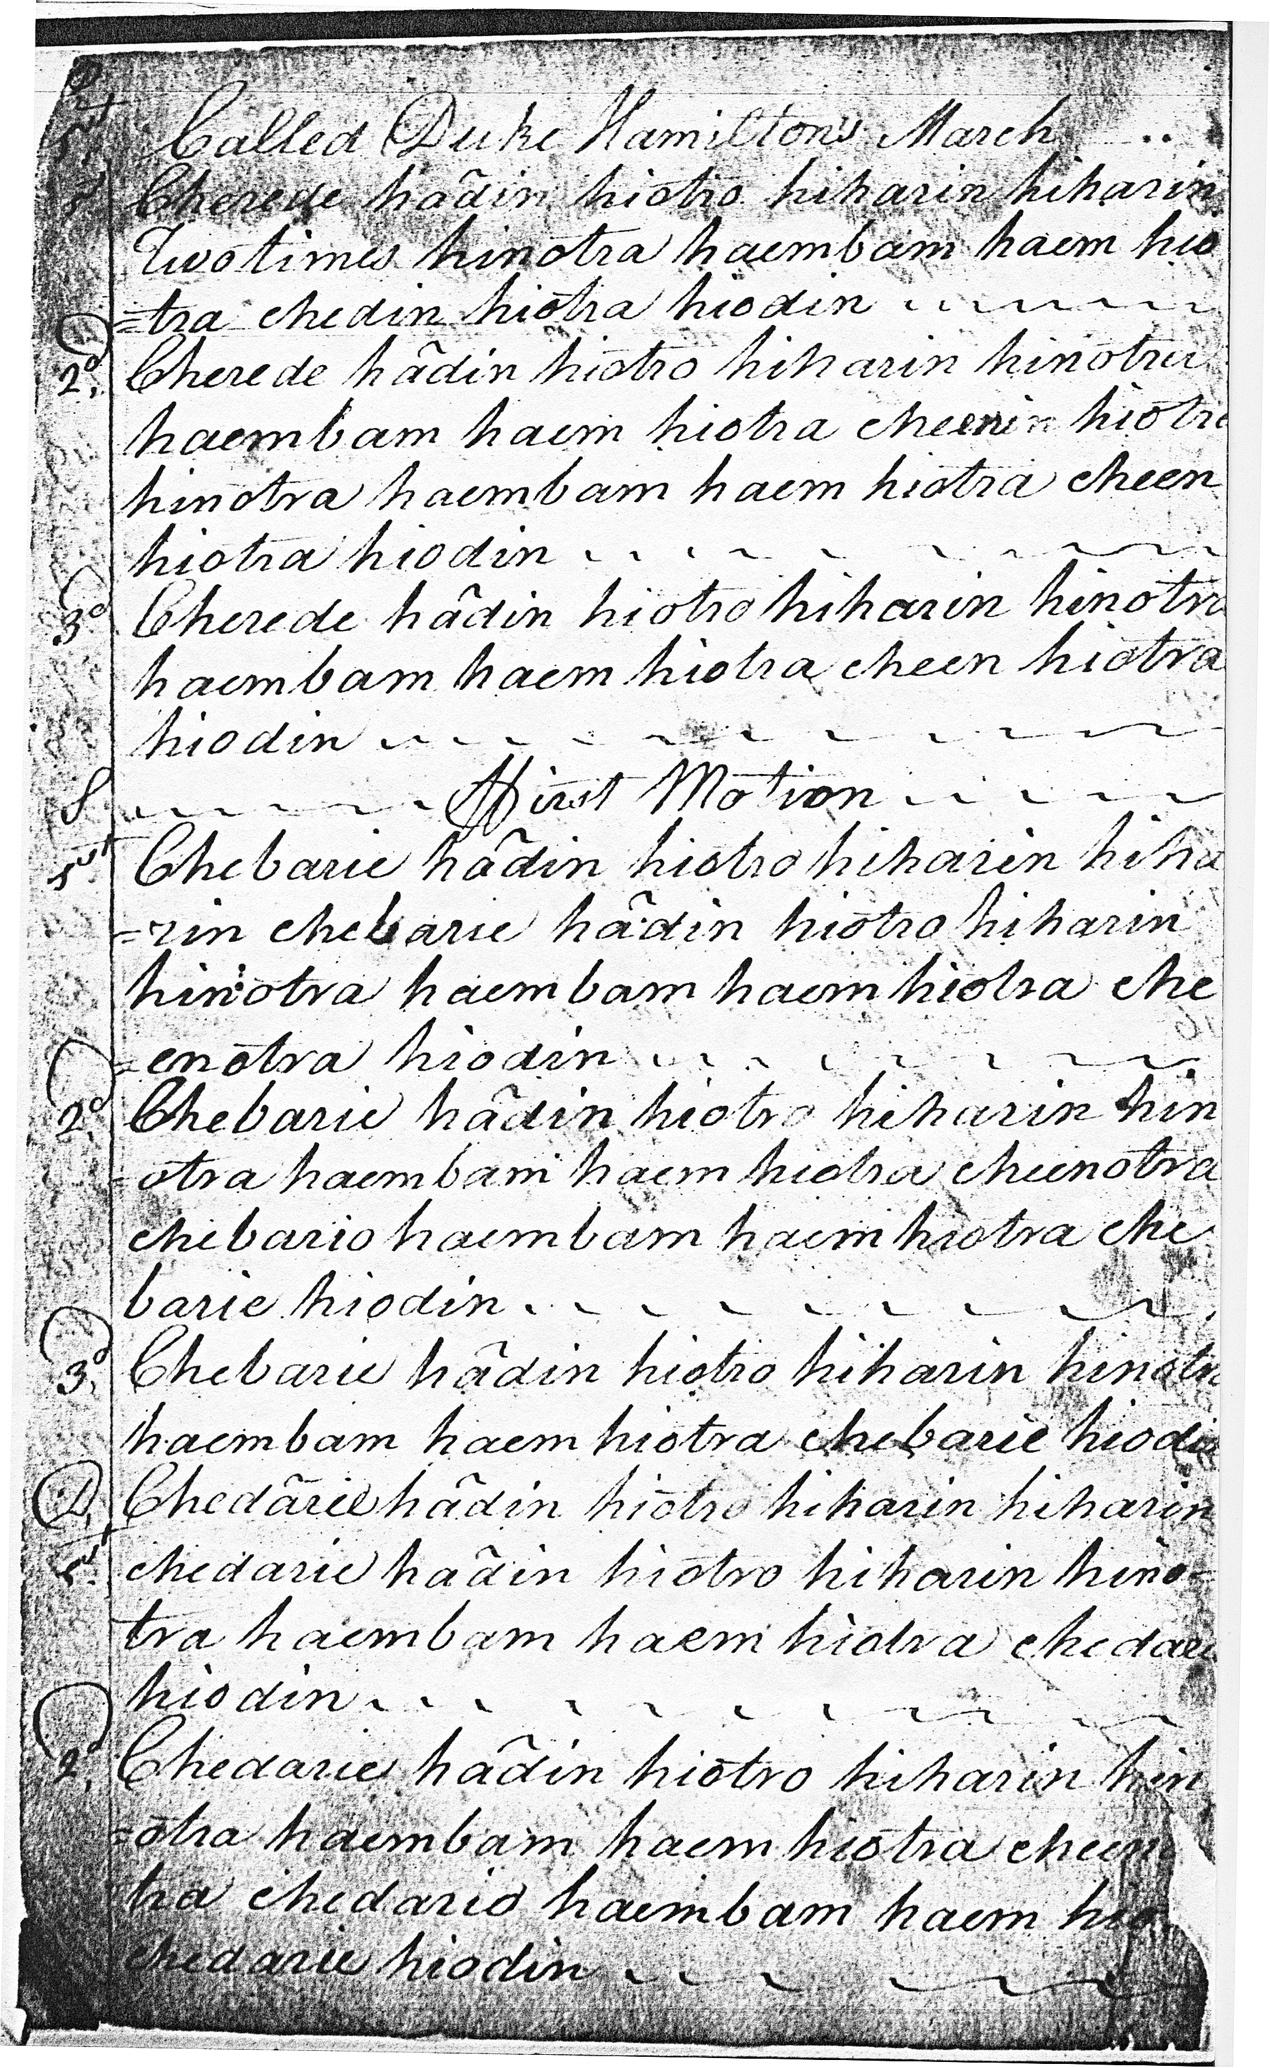 Called Duke Hamiltons March
1st Cherede hâdin hiotro hiharin hiharin
Two times hinotra haembam haem hio
=tra chedin hiotra hiodin
2d Cherede hâdin hiotro hiharin hinotra
haembam haem hiotra cheenin hiotra
hinotra haembam haem hiotra cheen
hiotra hiodin
3d Cherede hâdin hiotro hiharin hinotra
haembam haem hiotra cheen hiotra
hiodin
First Motion
1st Chebarie hâdin hiotro hiharin hiha
=rin chebarie hâdin hiotro hiharin
hinotra haembam haem hiotra che
=enotra hiodin
2d Chebarie hâdin hiotro hiharin hin
=otra haembam haem hiotra cheenotra
chebario haembam haem hiotra che
barie hiodin
3d Chebarie hâdin hiotro hiharin hinotra
haembam haem hiotra chebarie hiodin
D, Chedârie hâdin hiotro hiharin hiharin
1st chedarie hâdin hiotro hiharin hino=
tra haembam haem hiotra chedarie
hiodin
2d Chedarie hâdin hiotro hiharin hin
=otra haembam haem hiotra cheen
tra chedario haembam haem
chedarie hiodin